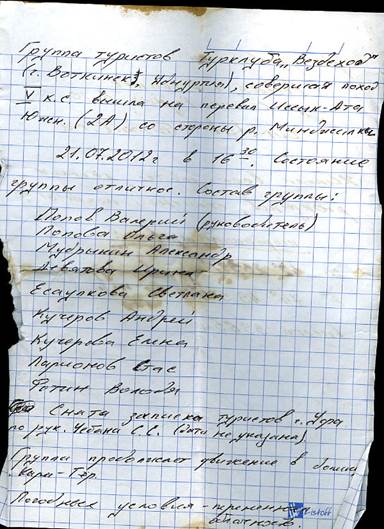 Группа туристов Турклуба „Вездеход"
(г. Воткинск, Удмуртия), совершая поход
V к.с. вышла на перевал Иссык-Ата
Южн. (2А) со стороны р.
21.07.2012г в 16 30. Состояние
группы отличное. Состав группы:
Попов Валерий (руководитель)
Попова Ольга
Мубрикин Александр
Девятова Ирина
Есаулкова Светлана
Кучеров Андрей
Кучерова Елена
Ларионов Стас
Фатин Володя
Снята записка туристов г. Уфа
по рук. Чебана С.С. (дата не указана)
Группа продолжает движение в долину
Кара-Тор.
Погодные условия - переменная
облачность.